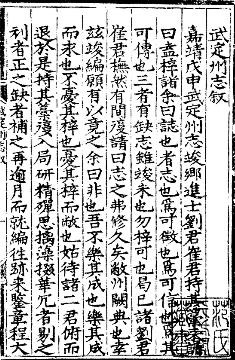 武定州志叙
嘉靖戊申武定州志竣鄉進士劉君崔君持其
曰盍梓諸余曰誌也者志也為可徵也為可信也為
可傳也三者有缺志雖竣未也勿梓可也易已諸劉君
崔君撫然有間復請曰志之弗修久矣敝州闕典也玄
茲竣編願有以竟之余曰非也吾不樂其成也樂其成
而未也不憂其梓也憂其梓而敝也姑待諸二君俯而
退於是持其藁復入局研精殫思摛藻掇華冗者剔之
利者正之缺者補之再逾月而就編往跡來鑒章程大